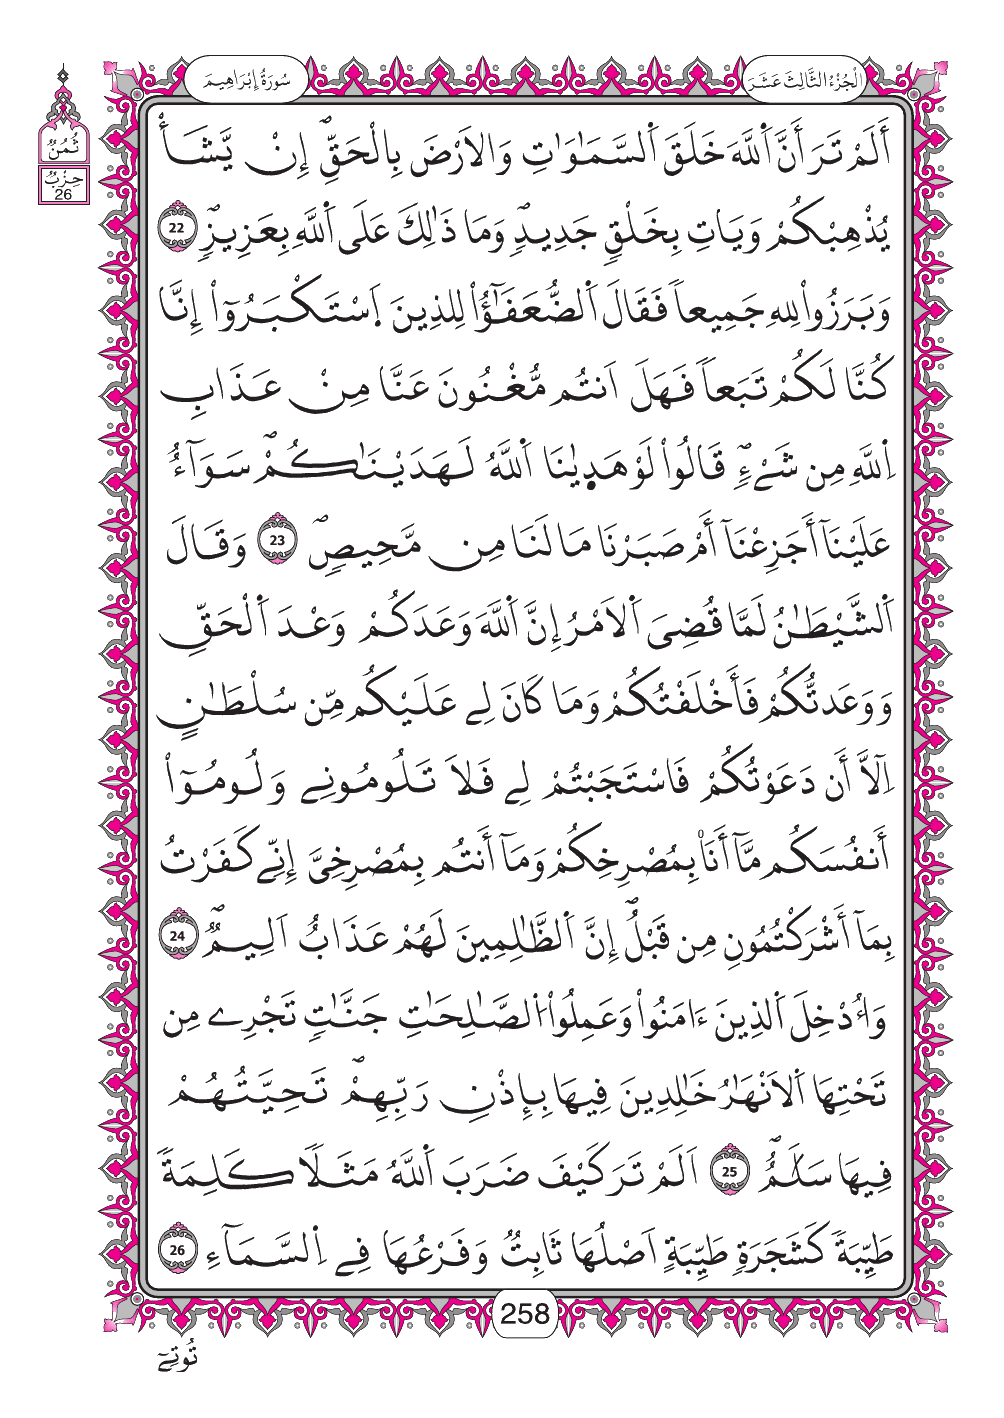 سُورَةُ إِبْرَاهِيمَ
الْجُزْءُ الثَّالِثَ عَشَرَ
ثُمُنٌ
حِزْبٌ
26
أَلَمْ تَرَ أَنَّ اَ۬للَّهَ خَلَقَ اَ۬لسَّمَٰوَٰتِ وَالَارْضَ بِالْحَقِّۖ إِنْ يَّشَأْ
يُذْهِبْكُمْ وَيَاتِ بِخَلْقٖ جَدِيدٖۖ وَمَا ذَٰلِكَ عَلَى اَ۬للَّهِ بِعَزِيزٖۖ 22
وَبَرَزُواْ لِلهِ جَمِيعاٗ فَقَالَ اَ۬لضُّعَفَٰٓؤُاْ لِلذِينَ اَ۪سْتَكْبَرُوٓاْ إِنَّا
كُنَّا لَكُمْ تَبَعاٗ فَهَلَ اَنتُم مُّغْنُونَ عَنَّا مِنْ عَذَابِ
اِ۬للَّهِ مِن شَےْءٖۖ قَالُواْ لَوْ هَد۪يٰنَا اَ۬للَّهُ لَهَدَيْنَٰكُمْۖ سَوَآءٌ
عَلَيْنَآ أَجَزِعْنَآ أَمْ صَبَرْنَا مَا لَنَا مِن مَّحِيصٖۖ 23 وَقَالَ
اَ۬لشَّيْطَٰنُ لَمَّا قُضِيَ اَ۬لَامْرُ إِنَّ اَ۬للَّهَ وَعَدَكُمْ وَعْدَ اَ۬لْحَقِّ
وَوَعَدتُّكُمْ فَأَخْلَفْتُكُمْ وَمَا كَانَ لِے عَلَيْكُم مِّن سُلْطَٰنٍ
اِلَّآ أَن دَعَوْتُكُمْ فَاسْتَجَبْتُمْ لِے فَلَا تَلُومُونِے وَلُومُوٓاْ
أَنفُسَكُم مَّآ أَنَا۠ بِمُصْرِخِكُمْ وَمَآ أَنتُم بِمُصْرِخِيَّ إِنِّے كَفَرْتُ
بِمَآ أَشْرَكْتُمُونِ مِن قَبْلُۖ إِنَّ اَ۬لظَّٰلِمِينَ لَهُمْ عَذَابٌ اَلِيمٞۖ 24
وَأُدْخِلَ اَ۬لذِينَ ءَامَنُواْ وَعَمِلُواْ اُ۬لصَّٰلِحَٰتِ جَنَّٰتٖ تَجْرِے مِن
تَحْتِهَا اَ۬لَانْهَٰرُ خَٰلِدِينَ فِيهَا بِإِذْنِ رَبِّهِمْۖ تَحِيَّتُهُمْ
فِيهَا سَلَٰمٌۖ 25 اَلَمْ تَرَ كَيْفَ ضَرَبَ اَ۬للَّهُ مَثَلاٗ كَلِمَةٗ
طَيِّبَةٗ كَشَجَرَةٖ طَيِّبَةٍ اَصْلُهَا ثَابِتٞ وَفَرْعُهَا فِے اِ۬لسَّمَآءِ 26
258
تُوتِےٓ